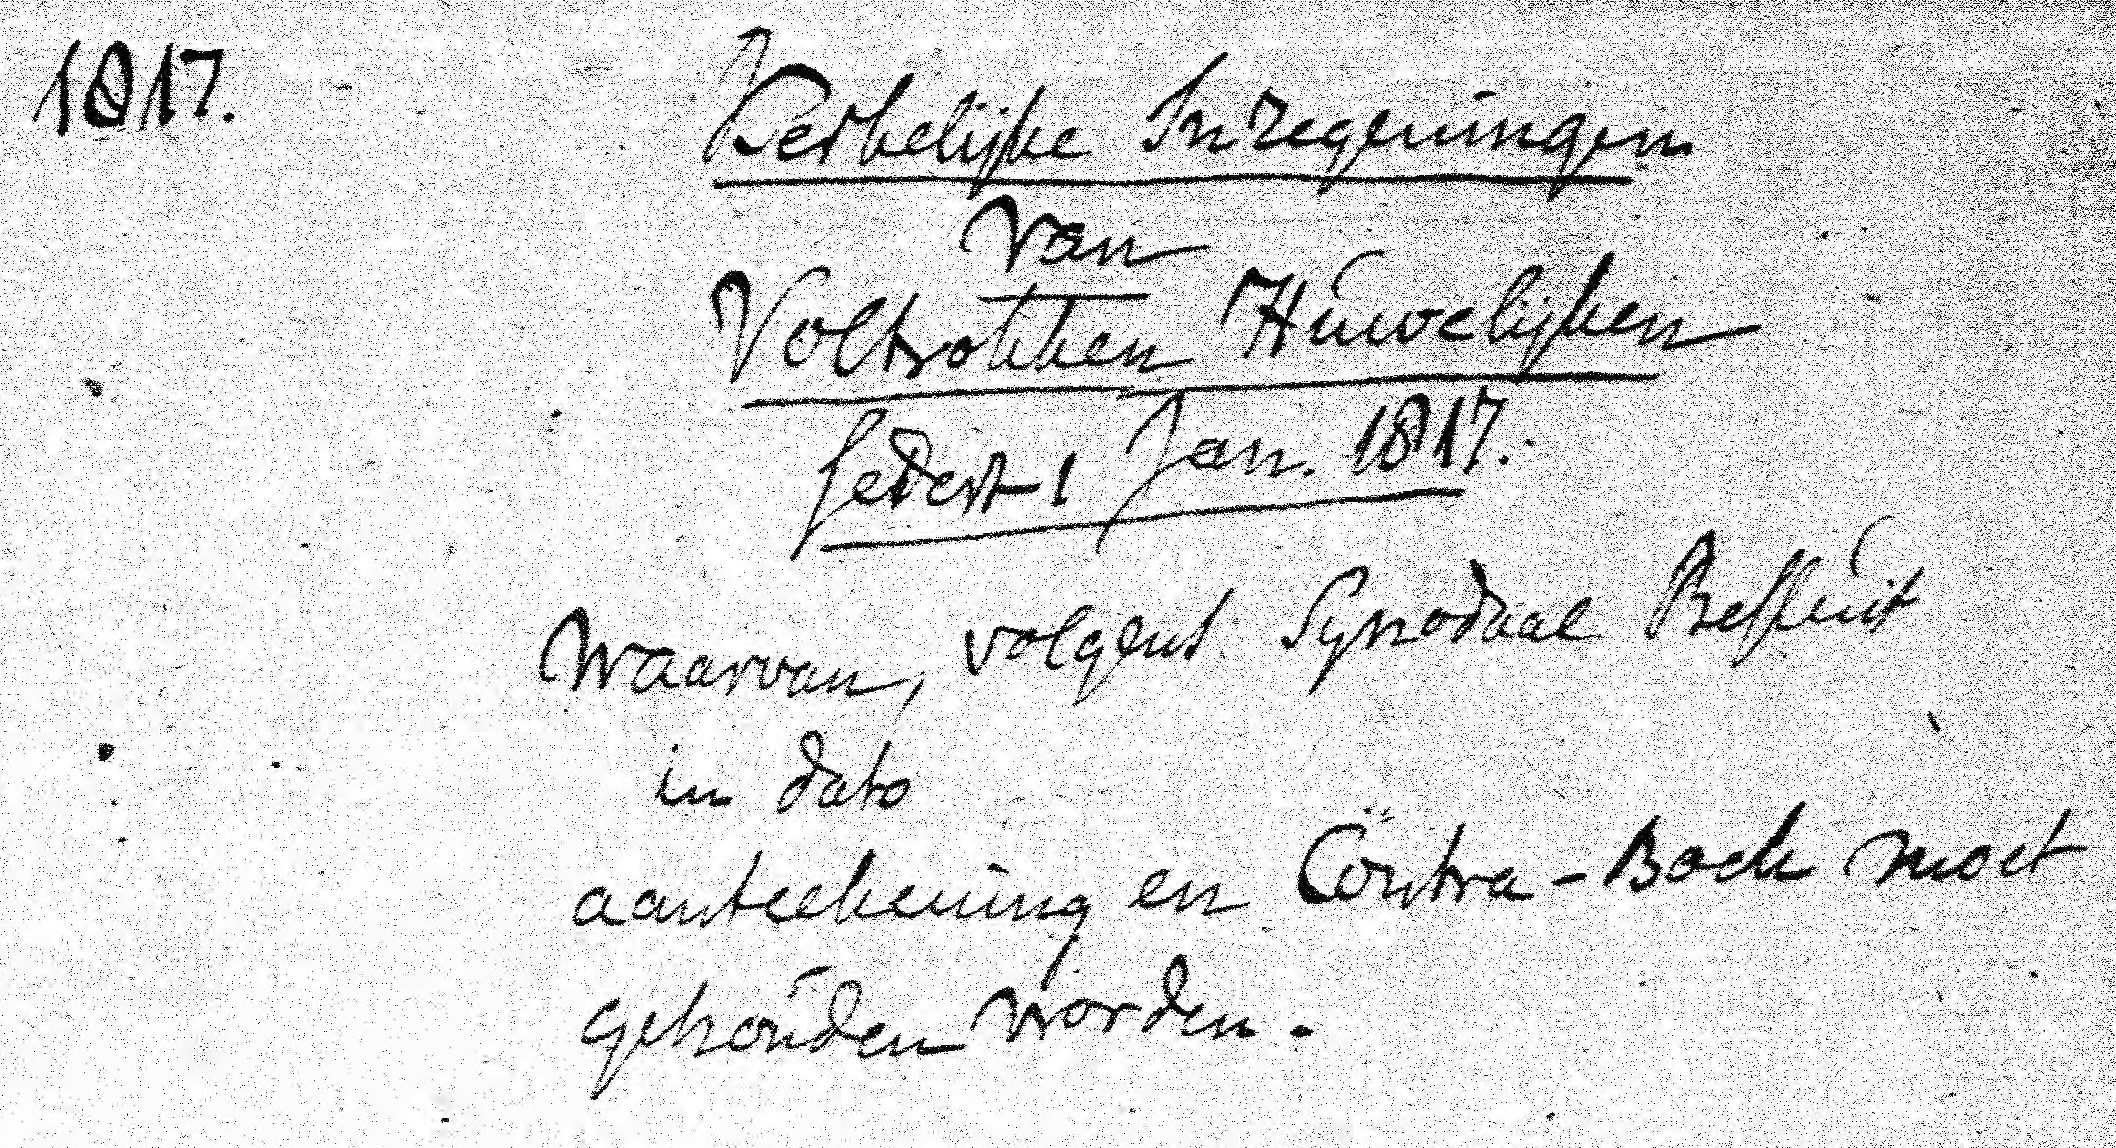 1817. Kerkelijke Inzegeningen
van
Voltrokken Huwelijken
sedert 1 Jan. 1817.
Waarvan, volgens Synodaal Besluit
in dato
aanteekening en Contra-Boek moet
gehouden worden.